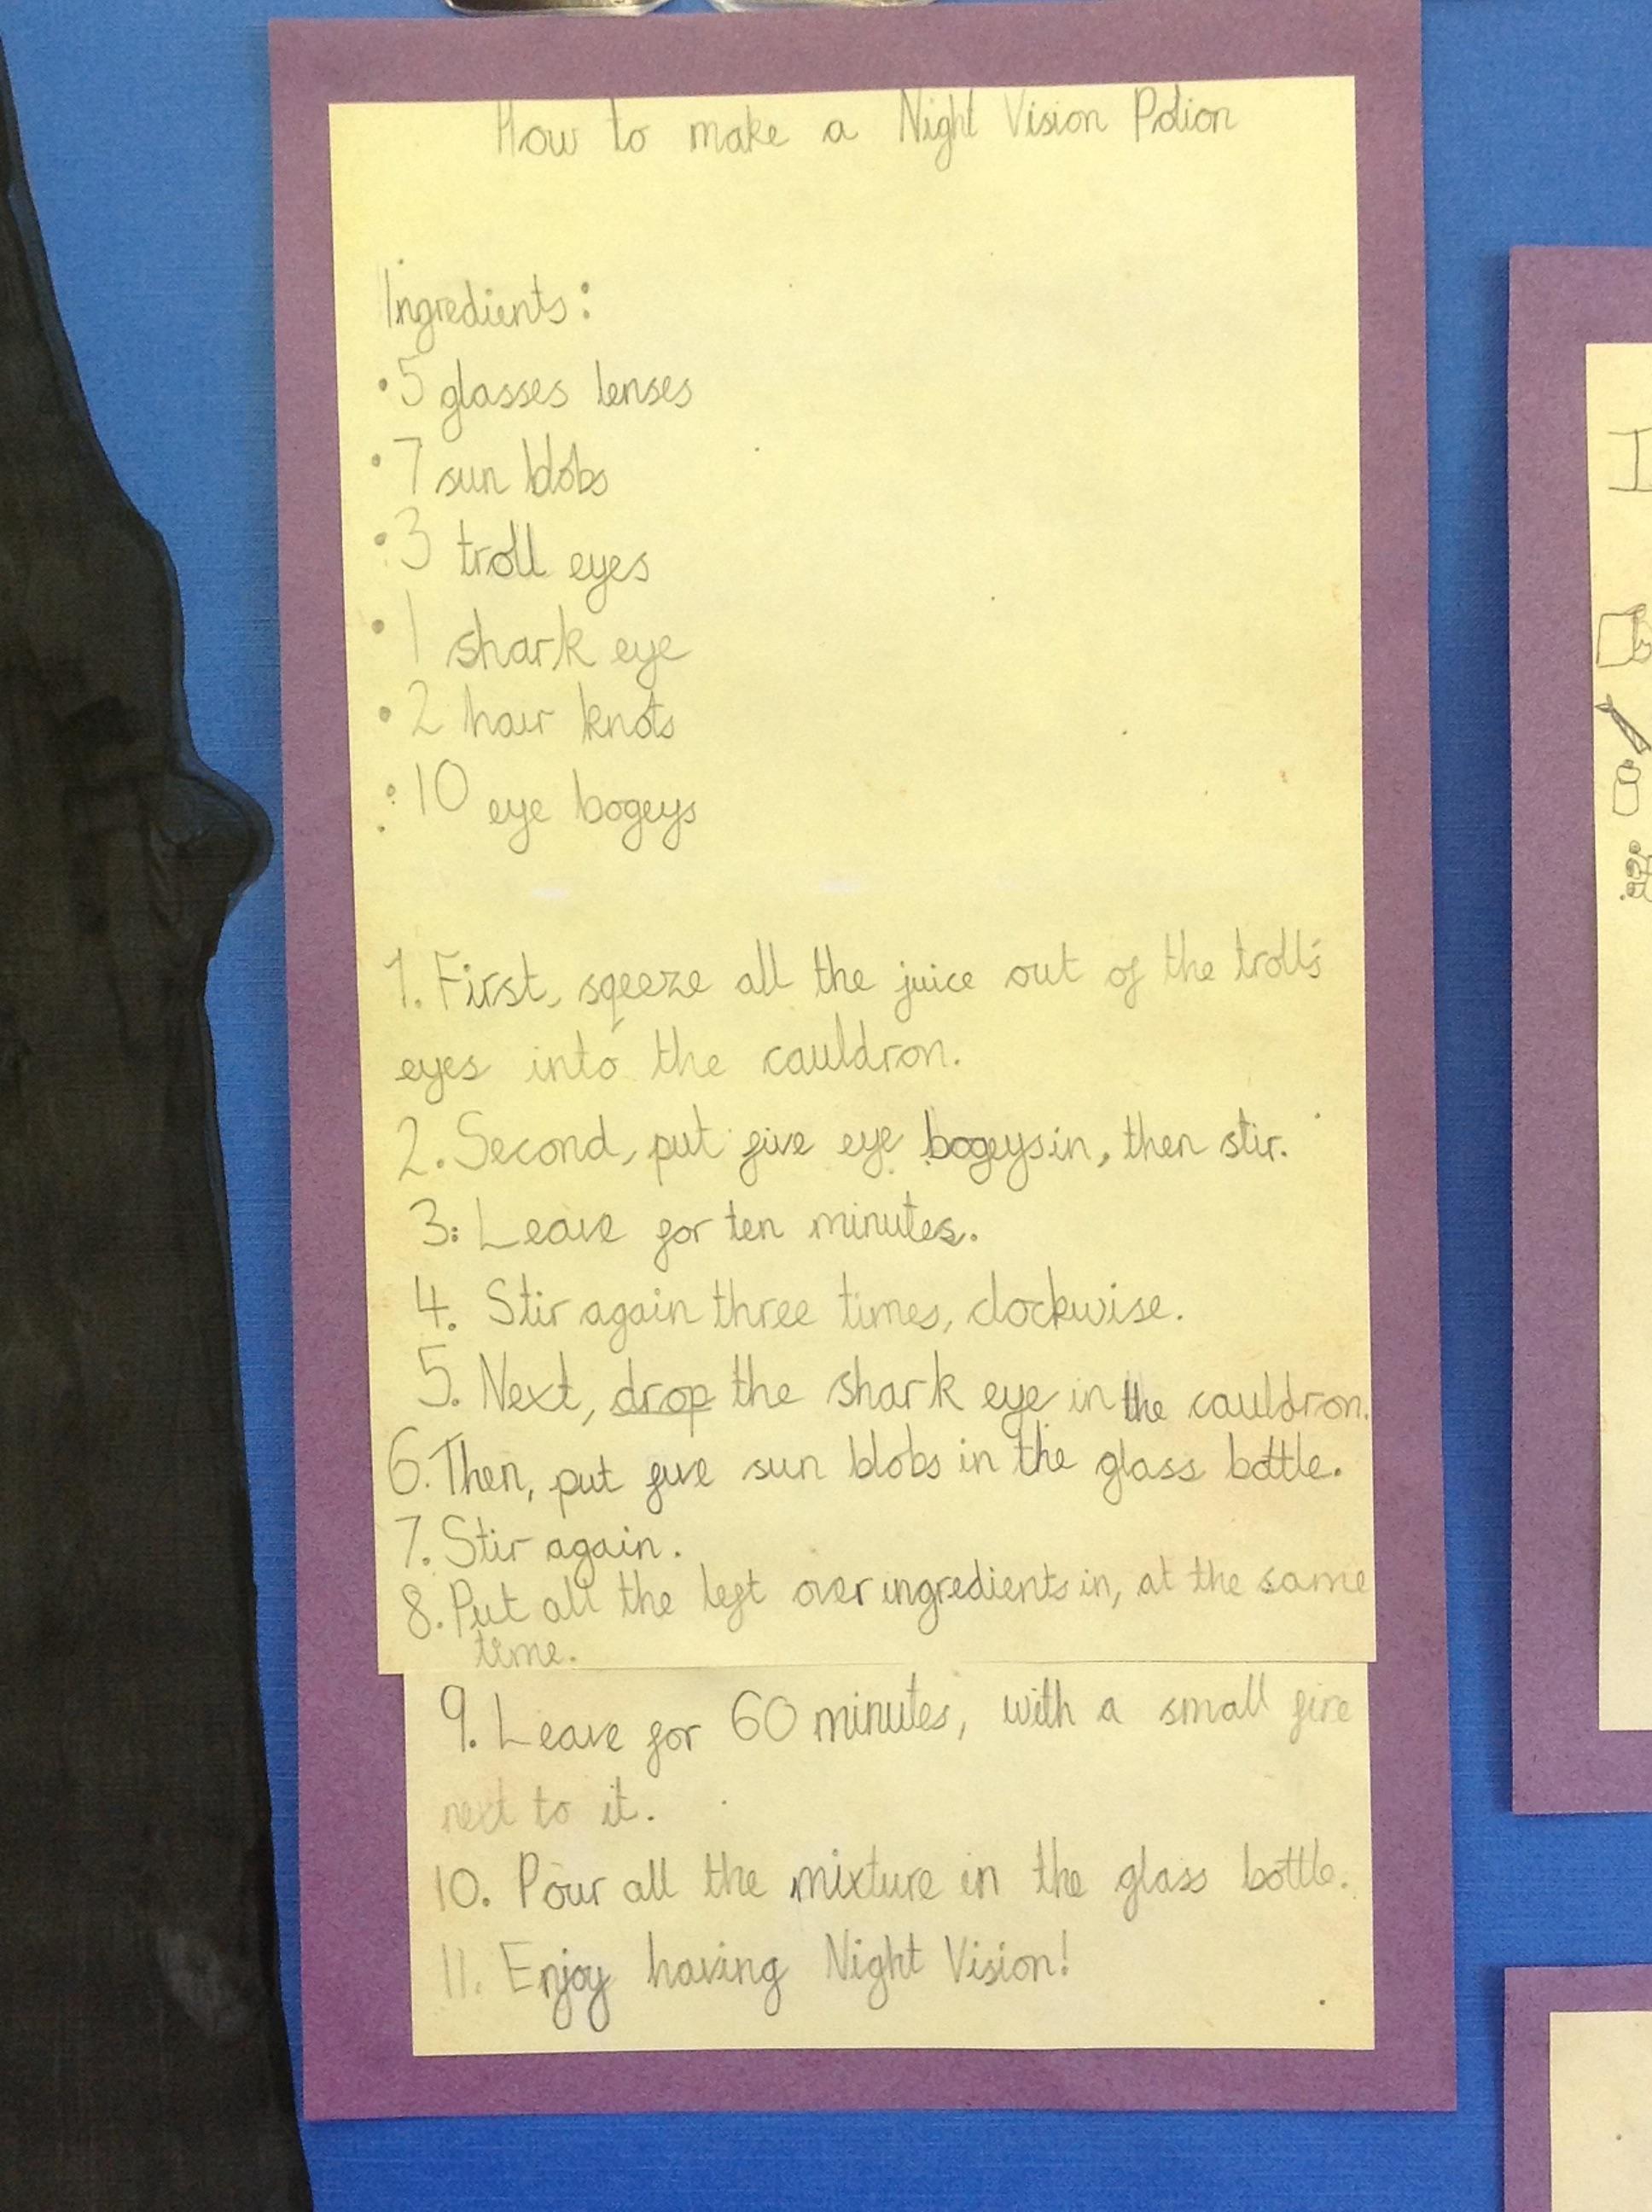 How to make a Night Vision Potion
Ingredients:
• 5 glasses lenses
• 7 sun blobs
• 3 troll eyes
• 1 shark eye
• 2 hair knots
• 10 eye bogeys
1. First, sqeeze all the juice out of the troll's
eyes into the cauldron.
2. Second, put five eye bogeys in, then stir.
3. Leave for ten minutes.
4. Stir again three times, clockwise.
5. Next, drop the shark eye in the cauldron.
6. Then, put five sun blobs in the glass bottle.
7. Stir again.
8. Put all the left over ingredients in, at the same
time.
9. Leave for 60 minutes, with a small fire
next to it.
10. Pour all the mixture in the glass bottle.
11. Enjoy having Night Vision!
I